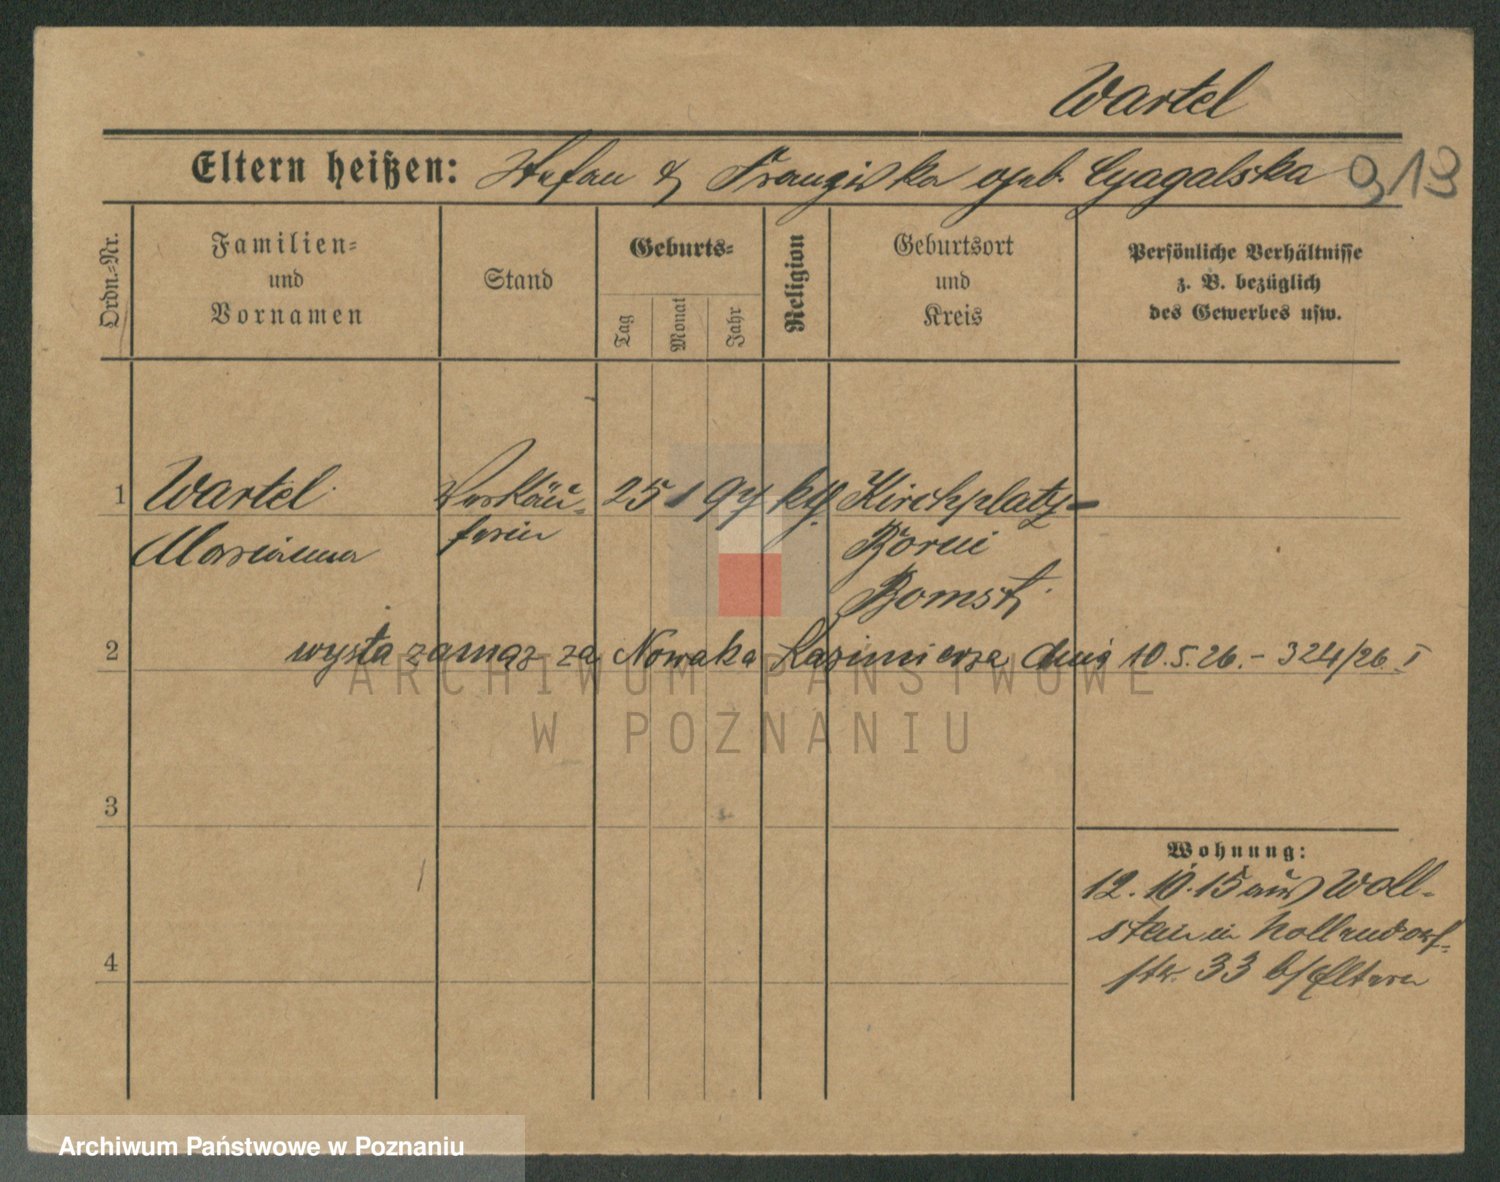 Wartel
Eltern heißen: Stefan & Franziska geb. Czagalska
913
Ordn.-Nr.
Familien-
und
Vornamen
Stand
Geburts-
Tag
Monat
Jahr
Religion
Geburtsort
und
Kreis
Persönliche Verhältnisse
z. B. bezüglich
des Gewerbes usw.
1 Wartel Verkäu- 25 1 97 kth. Kirchplatz-
Marianna ferin Borui
Bomst
2 wyszła zamąż za Nowaka Kazimierza dnia 10.5.26. - 324/26 I
3
4
Wohnung:
12.10.15 aus Woll-
stein in Hollendorf-
str. 33 b/Eltern
ARCHIWUM PAŃSTWOWE
W POZNANIU
Archiwum Państwowe w Poznaniu